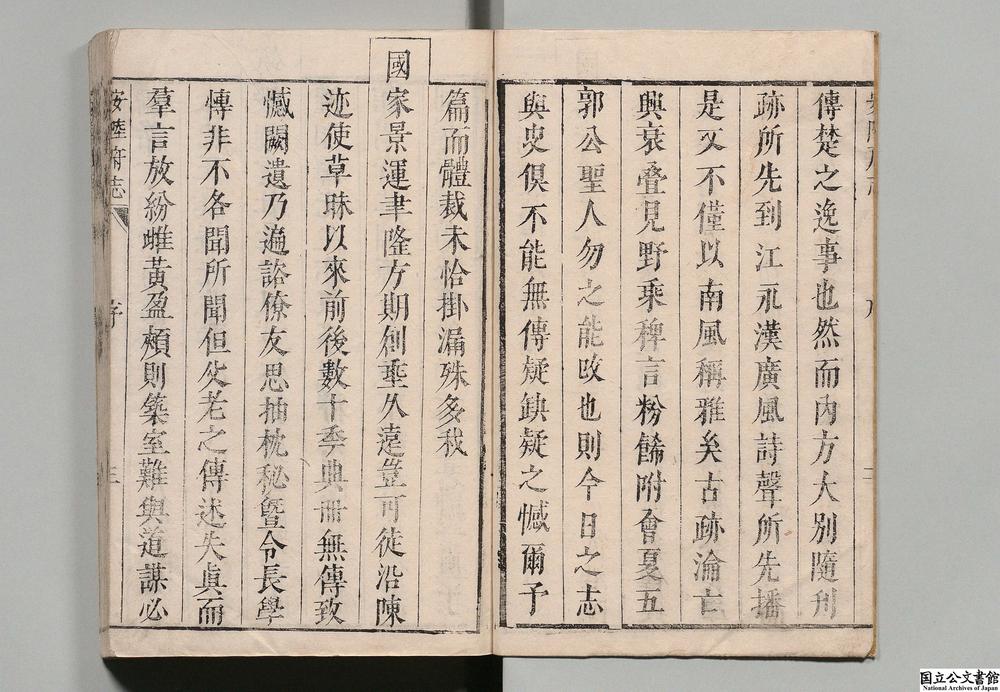 傳楚之逸事也然而內方大別隨刋
跡所先到江永漢廣風詩聲所先播
是又不僅以南風稱雅矣古跡淪亡
興衰叠見野乘稗言粉餙附會夏五
郭公聖人勿之能改也則今日之志
與史俱不能無傳疑缺疑之憾爾予
篇而體裁未恰掛漏殊多我
國家景運聿隆方期創垂久遠豈可徒沿陳
迹使草昧以來前後數十季典冊無傳致
憾闕遺乃遍諮僚友思抽枕秘曁令長學
愽非不各聞所聞但父老之傳述失眞而
羣言放紛雌黃盈頰則築室難與道謀必
安陸府志
序
三
国立公文書館
National Archives of Japan